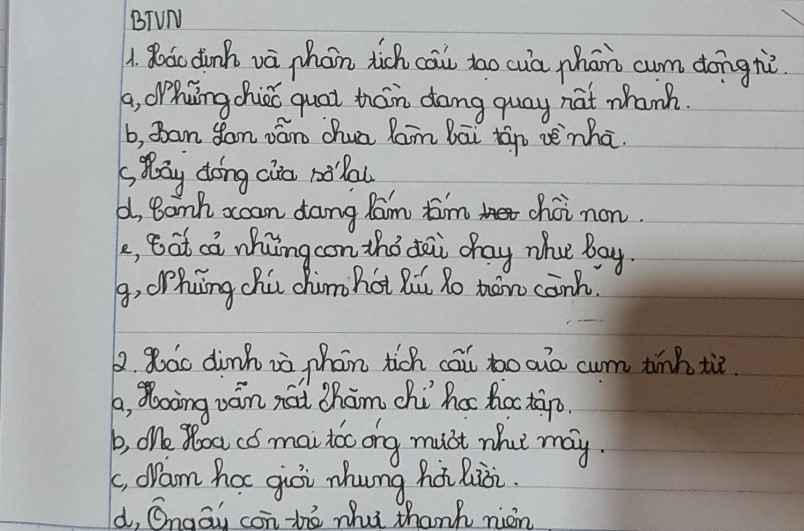 BTVN
1. Xác định và phân tích cấu tạo của phần cụm động từ.
a, Những chiếc quạt trần đang quay rất nhanh.
b, Bạn Lan vẫn chưa làm bài tập về nhà.
c, Hãy đóng cửa sổ lại.
d, Cành xoan đang lấm tấm chồi non.
e, Tất cả những con thỏ đều chạy như bay.
g, Những chú chim hót líu lo trên cành.
2. Xác định và phân tích cấu tạo của cụm tính từ.
a, Hoàng vẫn rất chăm chỉ học học tập.
b, Mẹ Hoa có mái tóc óng mượt như mây.
c, Nam học giỏi nhưng hơi lười.
d, Ông ấy còn trẻ như thanh niên